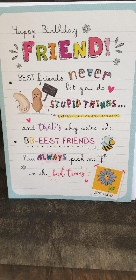 Happy Birthday
FRIEND!
BEST friends never
let you do
STUPID THINGS...
and that's why we're such
BEEST FRIENDS
You ALWAYS pick me up
in the bad times!